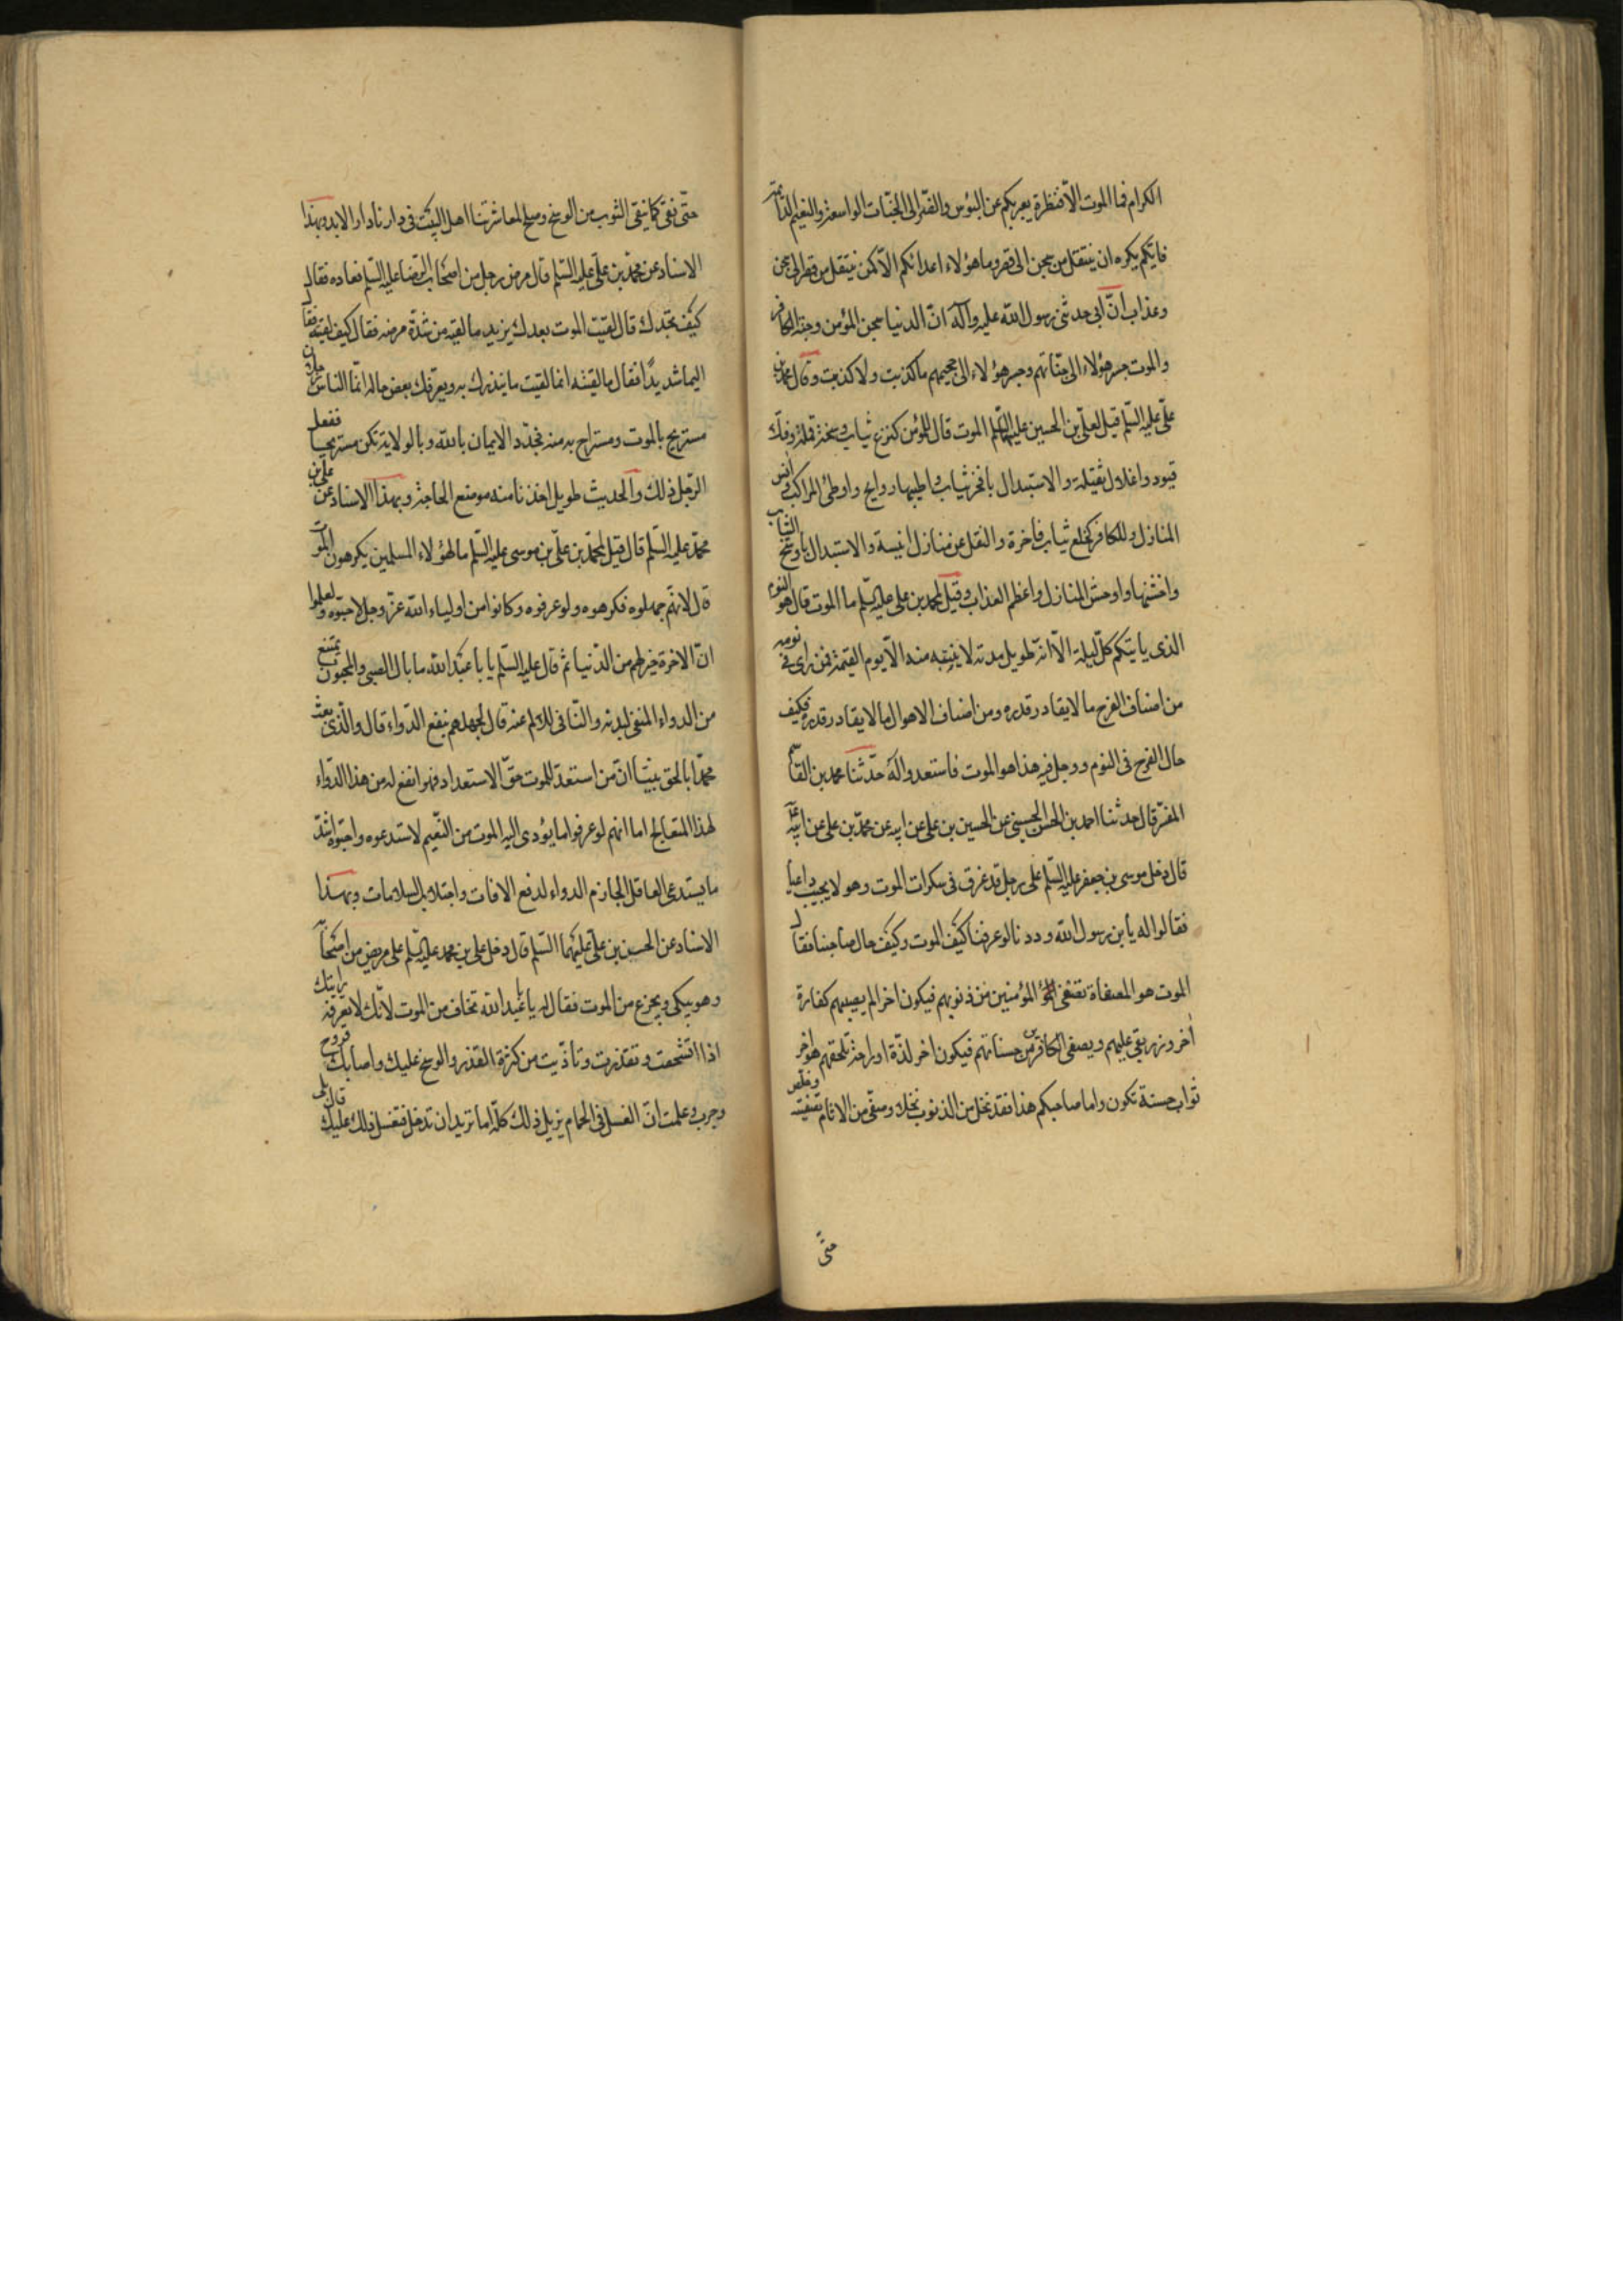 الكرام فما الموت الّا قنطرة يعبر بكم عن البؤس والضّر الى الجنّات الواسعة والنعيم الدائمة
فايّكم يكره ان ينتقل من سجن الى قصر وما هؤلاء اعدائكم الّا كمن ينتقل من قصر الى سجن
وعذاب انّ ابى حدثنى رسول الله عليه وآله انّ الدنيا سجن المؤمن وجنة الكافر
والموت جسر هؤلاء الى جنّاتهم وجسر هؤلاء الى جحيمهم ما كذبت ولا كذبت وقال محمد بن
علىّ عليه السّلم قيل لعلىّ بن الحسين عليه السّلم ما الموت قال للمؤمن كنزع ثياب وسخة قملة وفك
قيود واغلال ثقيلة والاستبدال بافخر ثياب واطيبها روايح واوطئ المراكب وانس
المنازل وللكافر كخلع ثياب فاخرة والنقل عن منازل انيسة والاستبدال باوسخ الثياب
واخشنها واوحش المنازل واعظم العذاب وقيل لمحمد بن على عليه السّلم ما الموت قال هو النوم
الذى ياتيكم كلّ ليلة الّا انّه طويل مدته لا ينتبه منه الّا يوم القيمة فمن راى فى نومه
من اصناف الفرح ما لا يقادر قدره ومن اصناف الاهوال ما لا يقادر قدره فكيف
حال الفرح فى النوم ووجل فيه هذا هو الموت فاستعدوا له حدّثنا محمد بن القاسم
المفسّر قال حدثنا احمد بن الحسن الحسينى عن الحسين بن على عن ابيه عن محمّد بن على عن ابيه ع
قال دخل موسى بن جعفر عليه السّلم على رجل قد غرق فى سكرات الموت وهو لا يجيب داعيا
فقالوا له يابن رسول الله وددنا لو عرفنا كيف الموت وكيف حال صاحبنا فقال
الموت هو المصفاة تصفى المؤمنين من ذنوبهم فيكون اخر الم يصيبهم كفارة
اخر وزر بقى عليهم ويصفى الكافرين من حسناتهم فيكون اخر لذّة او راحة تلحقهم هو اخر
ثواب حسنة تكون واما صاحبكم هذا فقد نخل من الذنوب نخلا وصفّى من الاثام تصفية وخلص
حتّى
حتّى نقى كما ينقى الثوب من الوسخ وصلح لمعاشرتنا اهل البيت فى دارنا دار الابد وبهذا
الاسناد عن محمّد بن علىّ عليه السّلم قال مرض رجل من اصحاب الرّضا عليه السّلم فعاده فقال
كيف تجدك قال لقيت الموت بعدك يريد ما لقيه من شدّة مرضه فقال كيف لقيته فقال
اليما شديدًا فقال ما لقيته انما لقيت ما ينذرك به ويعرّفك بعض حاله انّما الناس رجلان
مستريح بالموت ومستراح به منه فجدّد الايمان بالله وبالولاية تكن مستريحا ففعل
الرّجل ذلك والحديث طويل اخذنا منه موضع الحاجة وبهذا الاسناد عن على بن
محمّد عليه السّلم قال قيل لمحمّد بن علىّ بن موسى عليه السّلم ما لهؤلاء المسلمين يكرهون الموت
قال لانهّم جهلوه فكرهوه ولو عرفوه وكانوا من اولياء الله عزّ وجل لاحبّوه ولعلموا
انّ الاخرة خير لهم من الدّنيا ثمّ قال عليه السّلم يا با عبد الله ما بال الصبى والمجنون يمتنع
من الدواء المنقى لبدنه والنّافى للالم عنه قال لجهلهم بنفع الدّواء قال والّذى بعث
محمّدا بالحق نبيّا انّ من استعدّ للموت حقّ الاستعداد فهو انفع له من هذا الدّواء
لهذا المتعالج اما انهم لو عرفوا ما يؤدى اليه الموت من النّعيم لاستدعوه واحبّوه اشدّ
ما يستدعى العاقل الجازم الدواء لدفع الافات واجتلاب السلامات وبهذا
الاسناد عن الحسن بن علىّ عليهما السّلم قال دخل على بن محمد عليه السّلم على مريض من اصحابه
وهو يبكى ويجزع من الموت فقال له يا عبد الله تخاف من الموت لانّك لا تعرفه ارايتك
اذا اتّسخت وتقذرت وتاذّيت من كثرة القذر والوسخ عليك واصابك قروح
وجرب وعلمت انّ الغسل فى الحمام يزيل ذلك كلّه اما تريد ان تدخله فتغسل ذلك عليك قال بلى